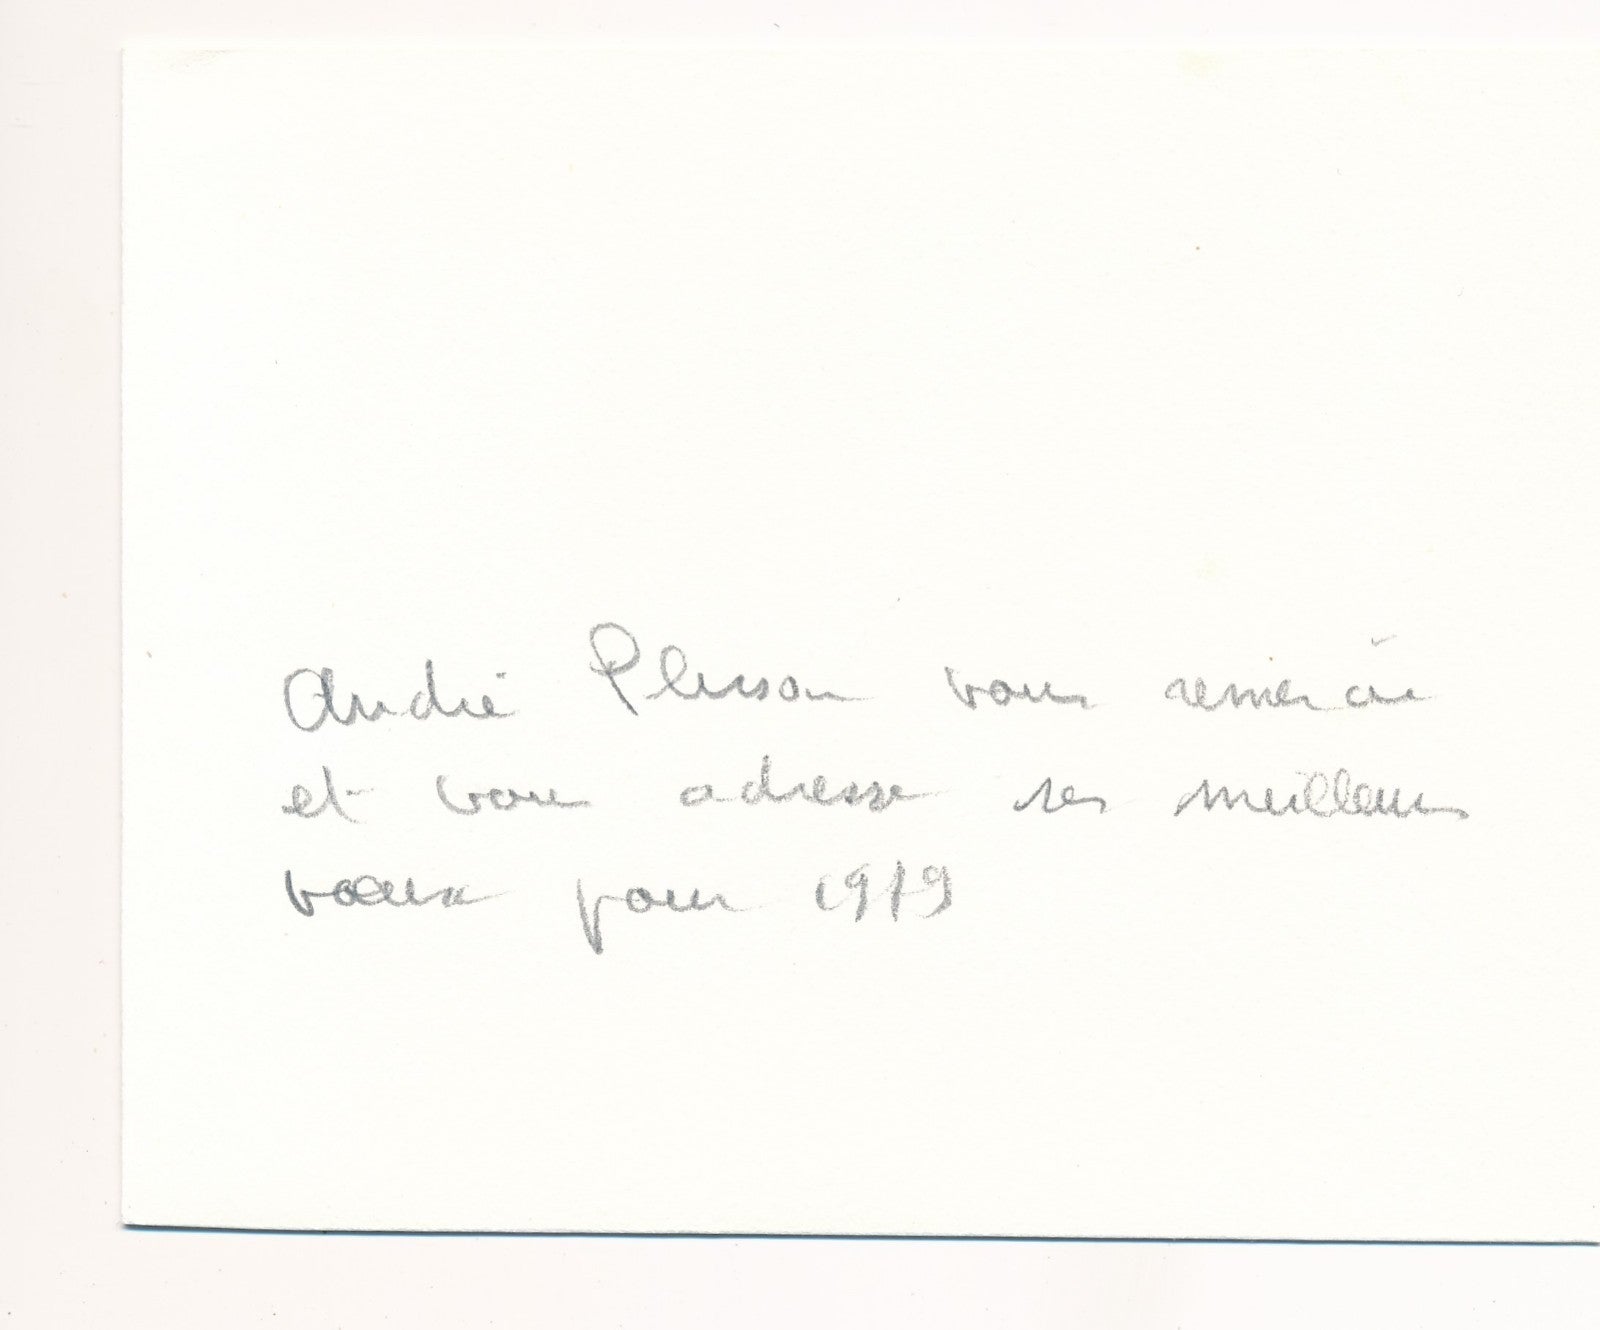 André Plisson vous remercie
et vous adresse ses meilleurs
voeux pour 1979